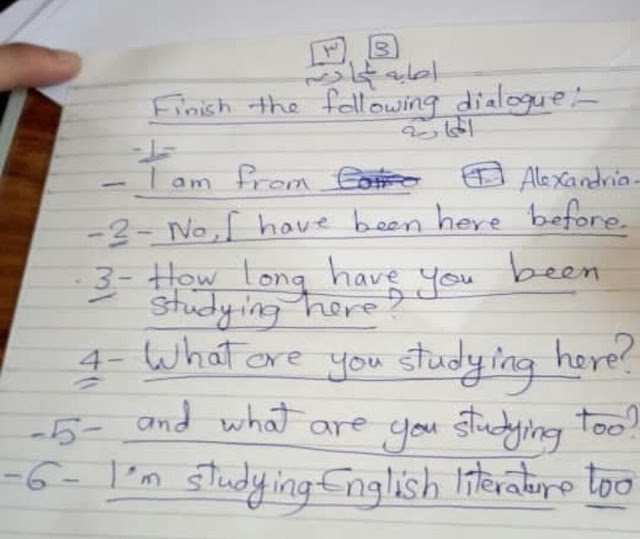 [٣] [3]
Finish the following dialogue:-
-1-
- I am from Alexandria.
-2- No, I have been here before.
3- How long have you been
studying here?
4- What are you studying here?
-5- and what are you studying too?
-6- I'm studying English literature too